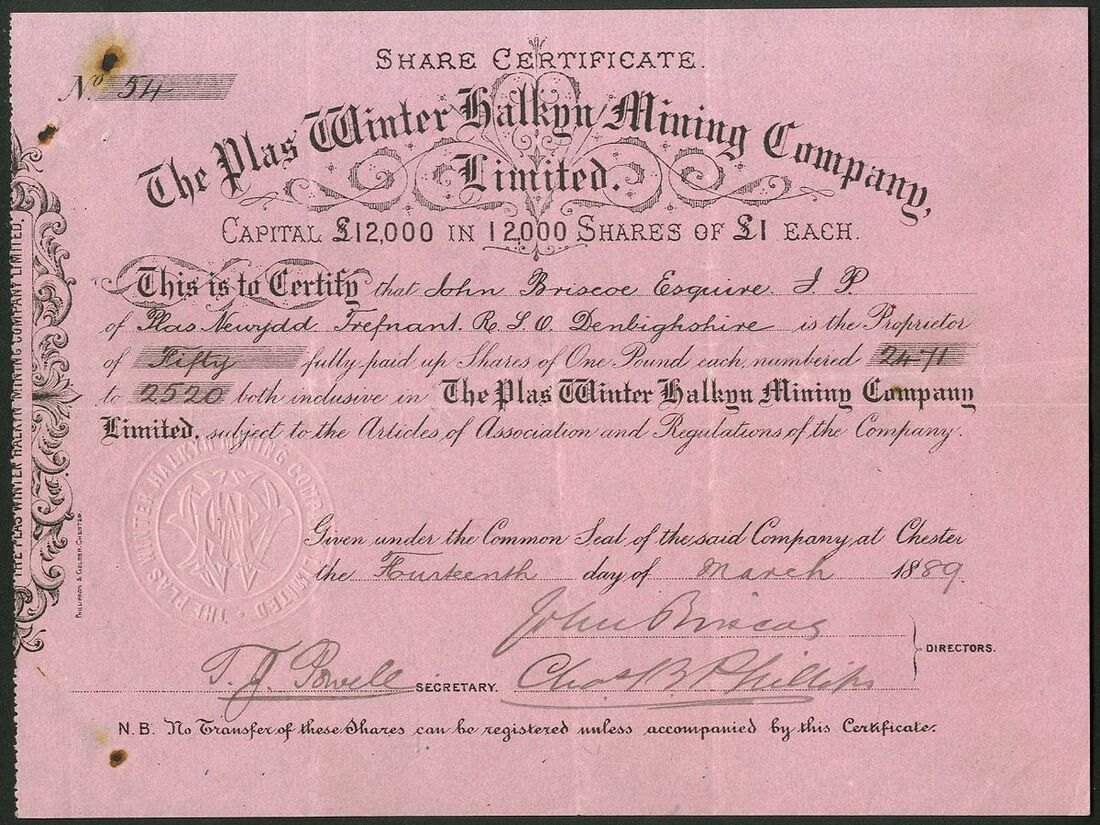 SHARE CERTIFICATE.
No. 54
The Plas Winter Halkyn Mining Company,
Limited.
CAPITAL £12,000 IN 12000 SHARES OF £1 EACH.
This is to Certify that John Briscoe Esquire J P
of Plas Newydd Trefnant R. S. O. Denbighshire is the Proprietor
of Fifty fully paid up Shares of One Pound each, numbered 2471
to 2520 both inclusive in The Plas Winter Halkyn Mining Company
Limited, subject to the Articles of Association and Regulations of the Company.
Given under the Common Seal of the said Company, at Chester
the Fourteenth day of March 1889.
John Briscoe
DIRECTORS.
T. J. Powell SECRETARY. Chas B Phillips
N.B. No Transfer of these Shares can be registered unless accompanied by this Certificate.
THE PLAS WINTER HALKYN MINING COMPANY LIMITED.
PHILLIPSON & GOLDER, CHESTER.
THE PLAS WINTER HALKYN MINING COMPANY LIMITED